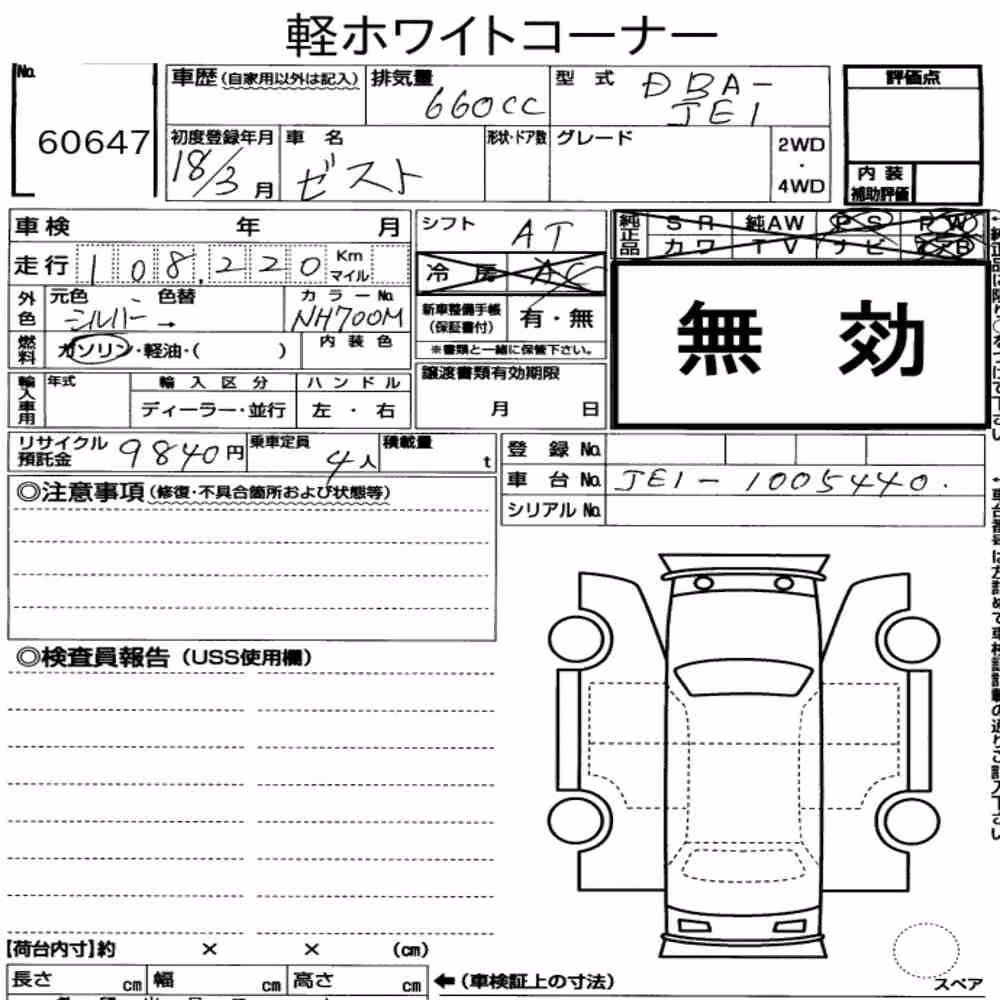 軽ホワイトコーナー
No.
60647
車歴(自家用以外は記入)
排気量
660cc
型 式
DBA-
JE1
評価点
初度登録年月
18/3月
車 名
ゼスト
形状・ドア数
グレード
2WD
・
4WD
内 装
補助評価
車検 年 月
シフト
AT
純正品
SR 純AW PS PW
カワ TV ナビ エアB
走行 108,220 Km
マイル
冷 房 AC
無 効
外色
元色 色替
シルバー →
カラーNo.
NH700M
新車整備手帳
(保証書付)
有・無
※書類と一緒に保管下さい。
燃料
ガソリン・軽油・( )
内 装 色
輸入車用
年式
輸 入 区 分
ハ ン ド ル
ディーラー・並行
左 ・ 右
譲渡書類有効期限
月 日
リサイクル
預託金
9840円
乗車定員
4人
積載量
t
登 録 No.
車 台 No. JE1-1005440.
シリアル No.
◎注意事項(修復・不具合箇所および状態等)
◎検査員報告(USS使用欄)
【荷台内寸】約 × × (cm)
長さ cm 幅 cm 高さ cm
←(車検証上の寸法)
スペア